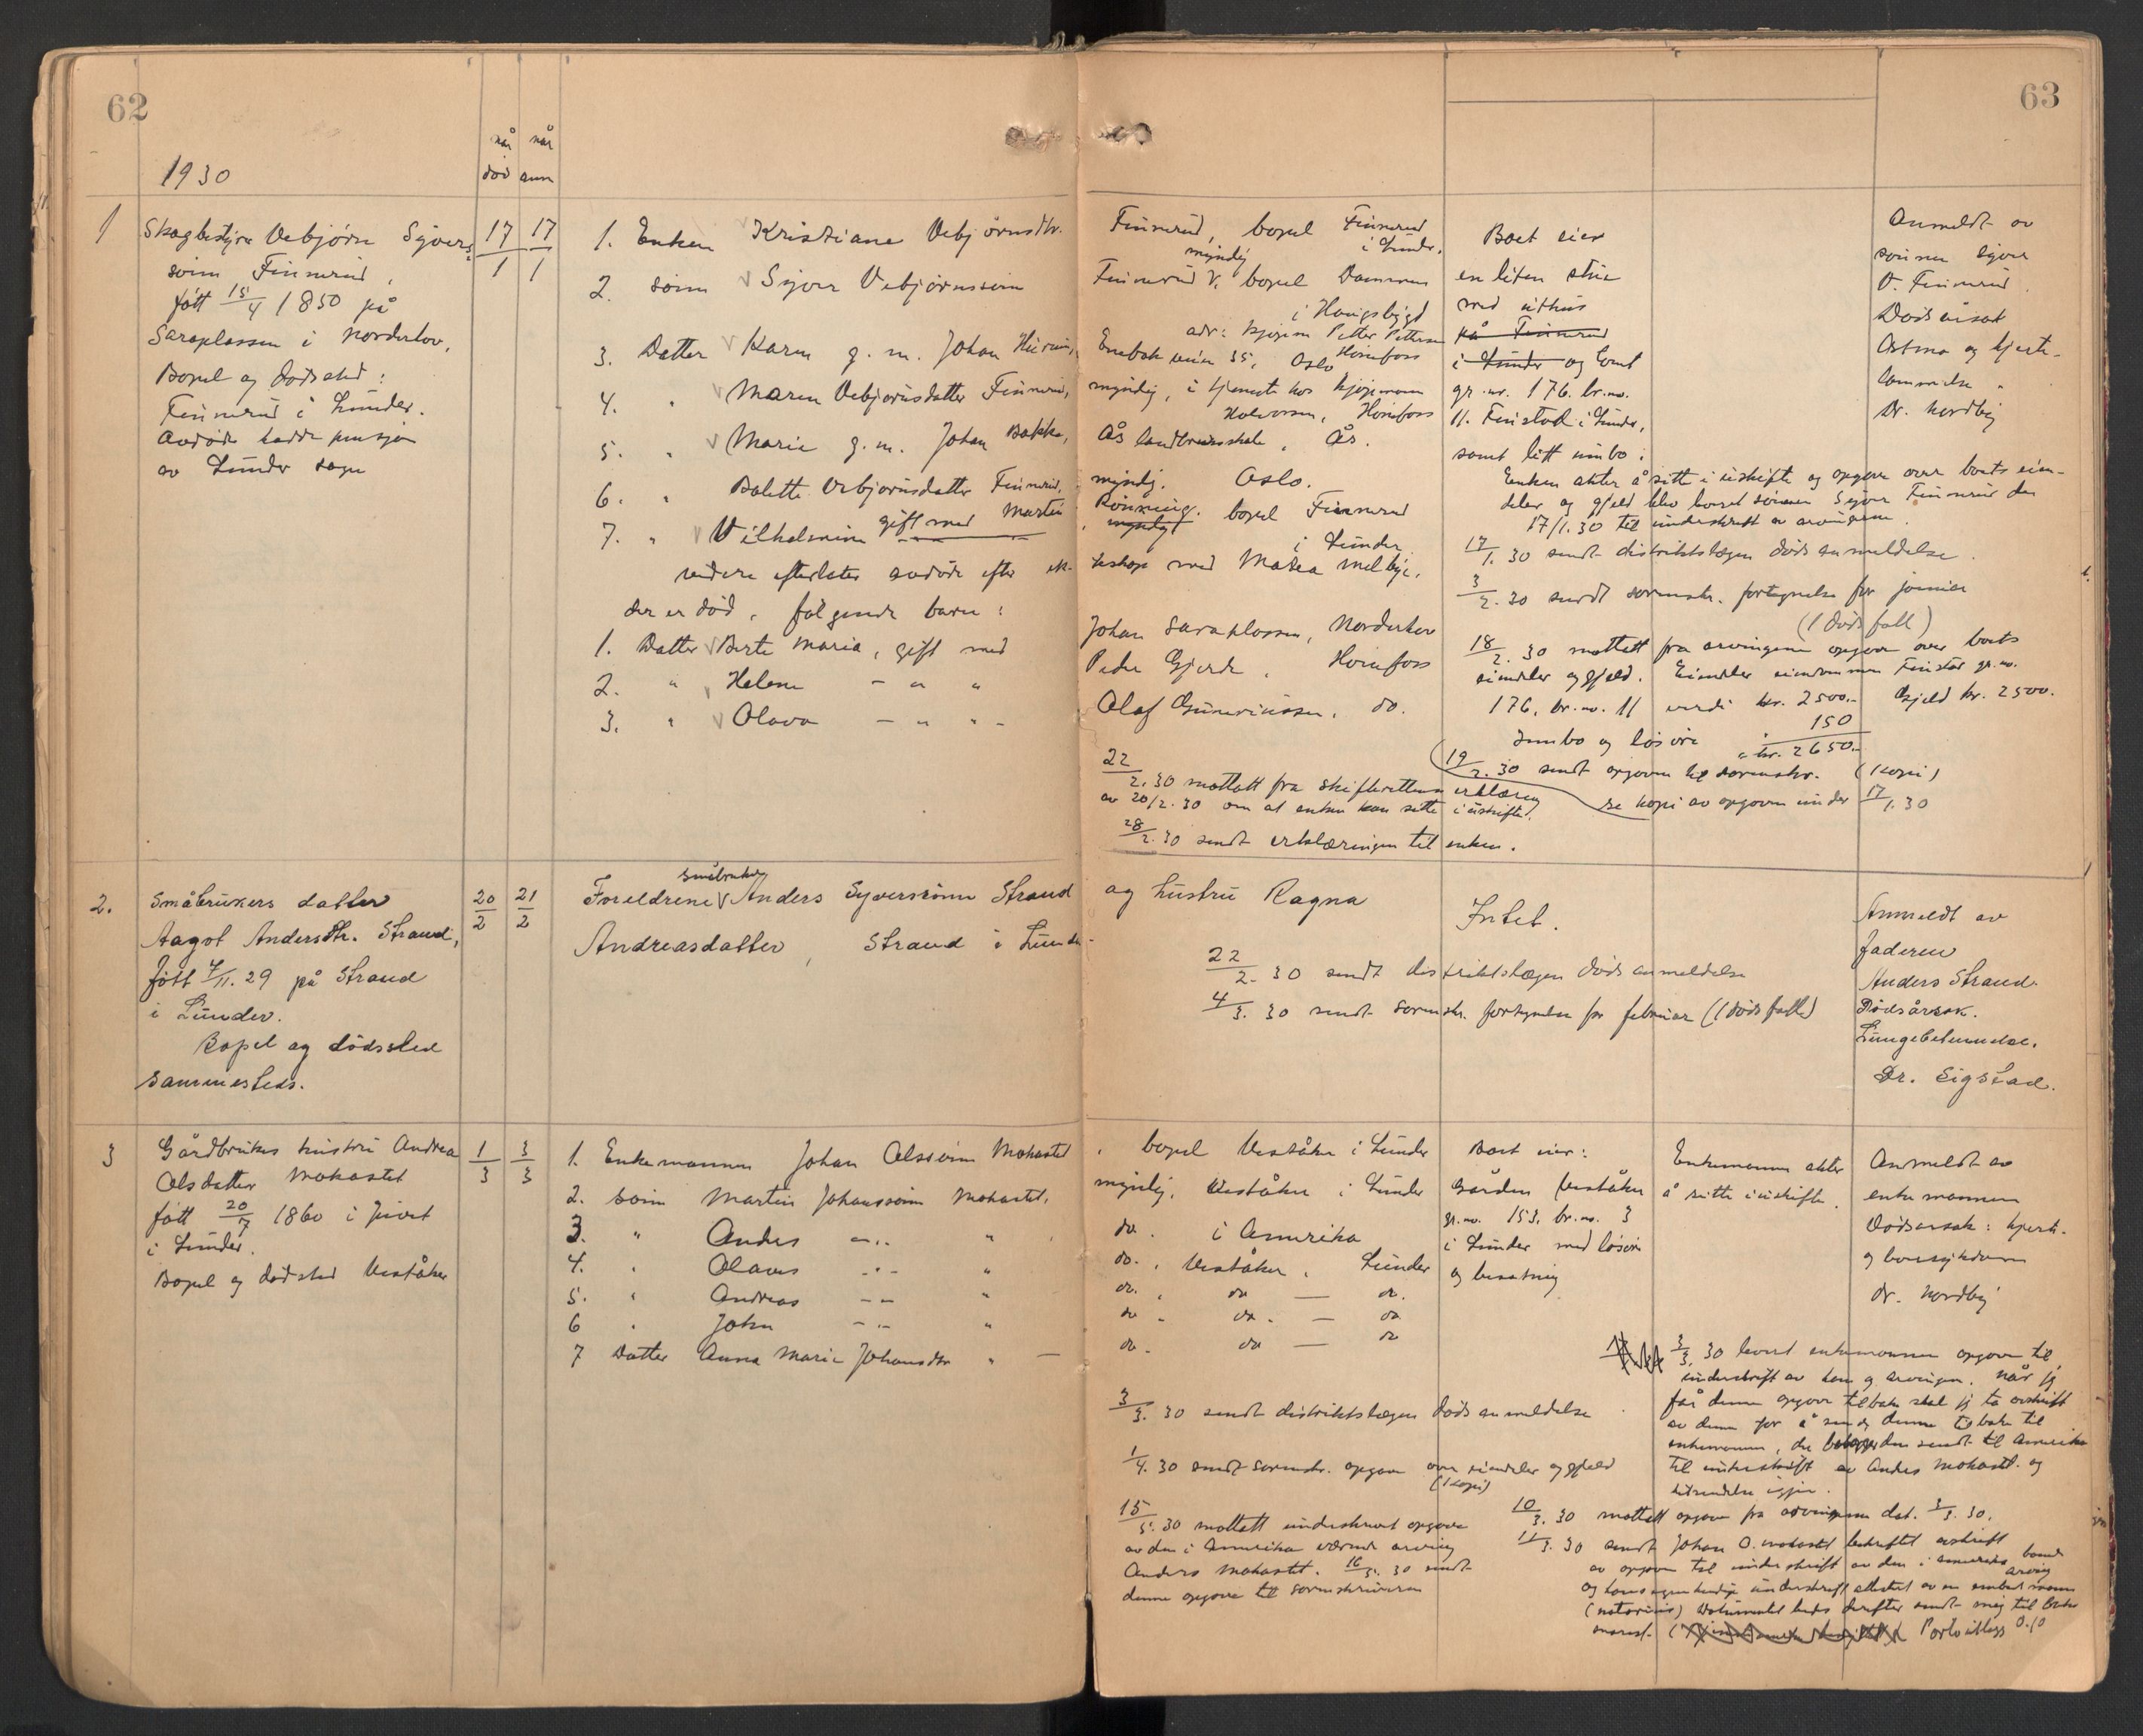 62
63
1930
når
død
når
anm
1
Skogbestyrer Vebjørn Syvers-
sønn Finnerud,
født 15/4 1850 på
Saraplassen i Norderhov,
Bopel og dødssted:
Finnerud i Lunder.
Avdøde hadde pensjon
av Lunder sogn
17/1
17/1
1. Enken Kristiane Vebjørnsdtr. Finnerud, bopel Finnerud
i Lunder.
2. sønn Syver Vebjørnssønn Finnerud V, myndig bopel Dammen
i Haugsbygd
3. Datter Karen g. m. Johan
adr: kjøpm Petter Pettersen Hønefoss
4. " Maren Vebjørnsdatter Finnerud, myndig, i tjeneste hos kjøpmann
Halvorsen, Hønefoss
5. " Marie g. m. Johan Bakke, Ås landbruksskole, Ås.
6. " Bolette Vebjørnsdatter Finnerud, myndig. Oslo.
7. " Vilhelmine gift med Martin Rönning. bopel Finnerud
myndig
i Lunder
videre efterlater avdøde efter ek- teskap med Matea Melbye,
der er død, følgende barn:
1. Datter Berte Maria, gift med Johan Saraplassen, Norderhov
2. " Helene - " " Peder Gjerde, Hønefoss
3. " Olava - " " - Olaf Gunerius­sen, do.
Boet eier
en liten stue
med uthus
på Finnerud
i Lunder og
gr. nr. 176. br. no.
11. Finstad i Lunder,
samt litt innbo:
Enken akter å sitte i uskifte og opgave over boets eien-
deler og gjeld blev levert sønnen Syver Finnerud den
17/1.30 til underskrift av arvingene.
17/1. 30 sendt distriktslægen dødsanmeldelse.
3/2. 30 sendt sorenskr. fortegnelse for januar
(1 dødsfall)
18/2. 30 mottatt fra arvingene opgave over boets
eiendeler og gjeld. Eiendeler eiendommen Finstad gr. no.
176, br. no. 11 verdi kr. 2500.- Gjeld kr. 2500.
Innbo og løsøre " 150
kr. 2650.-
19/2. 30 sendt opgaven til sorenskr. (kopi)
se kopi av opgaven under 17/1. 30
22/2. 30 mottatt fra skifteretten erklæring
av 20/2. 30 om at enken kan sitte i uskifte.
28/2. 30 sendt erklæringen til enken.
Anmeldt av
sønnen Syver
V. Finnerud.
Dødsårsak
Astma og hjerte-
lammelse.
Dr. Nordby
2.
Småbrukers datter
Aagot Andersdtr. Strand,
født 7/11. 29 på Strand
i Lunder.
Bopel og dødssted
sammesteds.
20/2
21/2
småbruker
Foreldrene Anders Syverssønn Strand og hustru Ragna
Andreasdatter, Strand i Lunder.
Intet.
22/2. 30 sendt distriktslægen dødsanmeldelse
4/3. 30 sendt sorenskr. fortegnelse for februar (1 dødsfall)
Anmeldt av
faderen
Anders Strand.
Dødsårsak.
Lungebetennelse.
Dr. Sigstad.
3
Gårdbrukers hustru Andrea
Olsdatter Mohastet
født 20/7 1860 i
i Lunder.
Bopel og dødssted Veståker
1/3
3/3
1. Enkemannen Johan Olssønn Mohastet, bopel Veståker i Lunder
2. Sønn Martin Johanssønn Mohastet, myndig, Veståker i Lunder
3. " Anders - " - " do. i Amerika
4. " Olaves - " - " do. , Veståker, Lunder
5. " Andreas - - " do. , do - do.
6 " John - " - " do - do. - do
7 Datter Anna Marie Johansdtr " - do - do - do
Boet eier:
Gården Veståker
gr. no. 153, br. no. 3
i Lunder med løsøre
og besetning
Enkemannen akter
å sitte i uskifte.
Anmeldt av
enkemannen
Dødsårsak: hjerte-
og
dr. Nordby
3/3. 30 sendt distriktslægen dødsanmeldelse
1/4. 30 sendt sorenskr. opgave over eiendeler og gjeld
(1 kopi)
15/5. 30 mottatt underskrevet opgave
av den i Amerika værende arving
Anders Mohastet. 16/5. 30 sendt
denne opgave til sorenskriveren
3/3. 30 levert enkemannen opgave til
underskrift av ham og arvingene. Når jeg
får denne opgave tilbake skal jeg ta avskrift
av denne for å sende denne tilbake til
enkemannen, der besørger den sendt til Amerika
til underskrift av Anders Mohastet og
tilsendelse igjen.
10/3. 30 mottatt opgave fra arvingene dat. 3/3. 30.
11/3. 30 sendt Johan O. Mohastet bekreftet avskrift
av opgave til underskrift av den i Amerika boende
arving
og hans egenhendige underskrift attestert av en embedsmann
(notarius) Dokumentet bedes derefter sendt mig tilbake
snarest. Porto utlegg 0.10